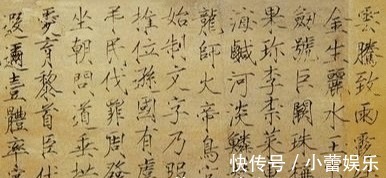 雲騰致雨露
金生麗水
劍號巨闕珠稱
果珍李柰菜
海鹹河淡鱗
龍師火帝鳥官
始制文字乃服
推位遜國有虞
弔民伐罪周發
坐朝問道垂拱
愛育黎首臣伏
遐邇壹體率賓
快传号 / 小蕾娱乐